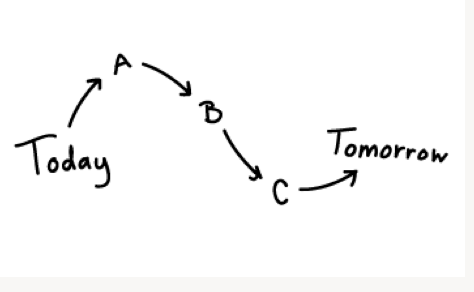 Today
A
B
C
Tomorrow